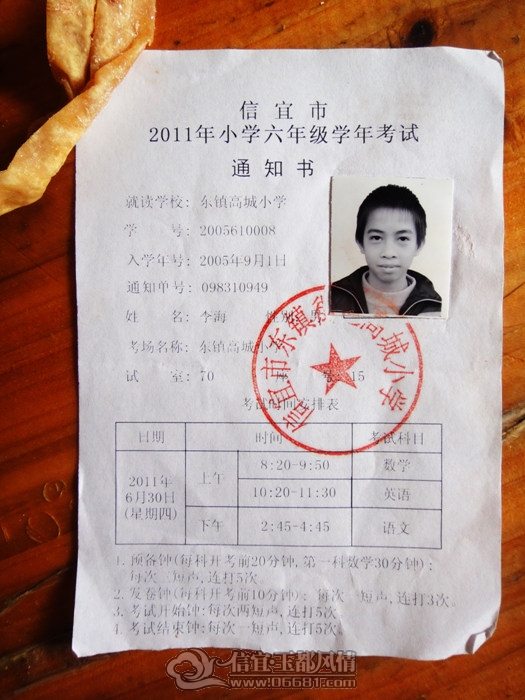 信宜市
2011年小学六年级学年考试
通知书
就读学校：东镇高城小学
学 号：2005610008
入学年号：2005年9月1日
通知单号：098310949
姓 名：李海 性别：男
考场名称：东镇高城小学
试 室：70 15
考试时间安排表
日期 时间 考试科目
2011年
6月30日
(星期四)
上午 8:20-9:50 数学
10:20-11:30 英语
下午 2:45-4:45 语文
1. 预备钟(每科开考前20分钟,第一科数学30分钟)：
每次三短声,连打5次。
2. 发卷钟(每科开考前10分钟)：每次一短声,连打3次。
3. 考试开始钟:每次两短声,连打5次。
4. 考试结束钟:每次一短声,连打5次。
信宜市东镇 高城小学
信宜玉都风情
www.06681.com